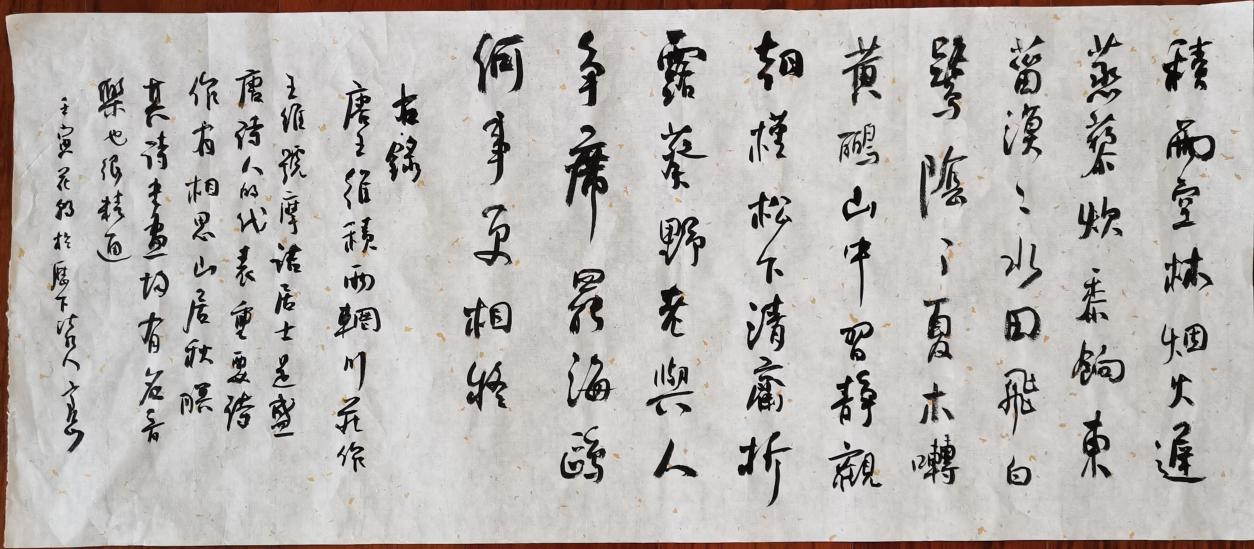 積雨空林烟火遲
蒸藜炊黍餉東
菑漠〻水田飛白
鷺陰〻夏木囀
黄鸝山中習静觀
朝槿松下清齋折
露葵野老與人
争席罷海鷗
何事更相疑
右錄
唐王維積雨輞川莊作
王維號摩詰居士是盛
唐詩人的代表重要詩
作有相思山居秋暝
其詩書畫均有名音
樂也很精通
壬寅花朝於歷下